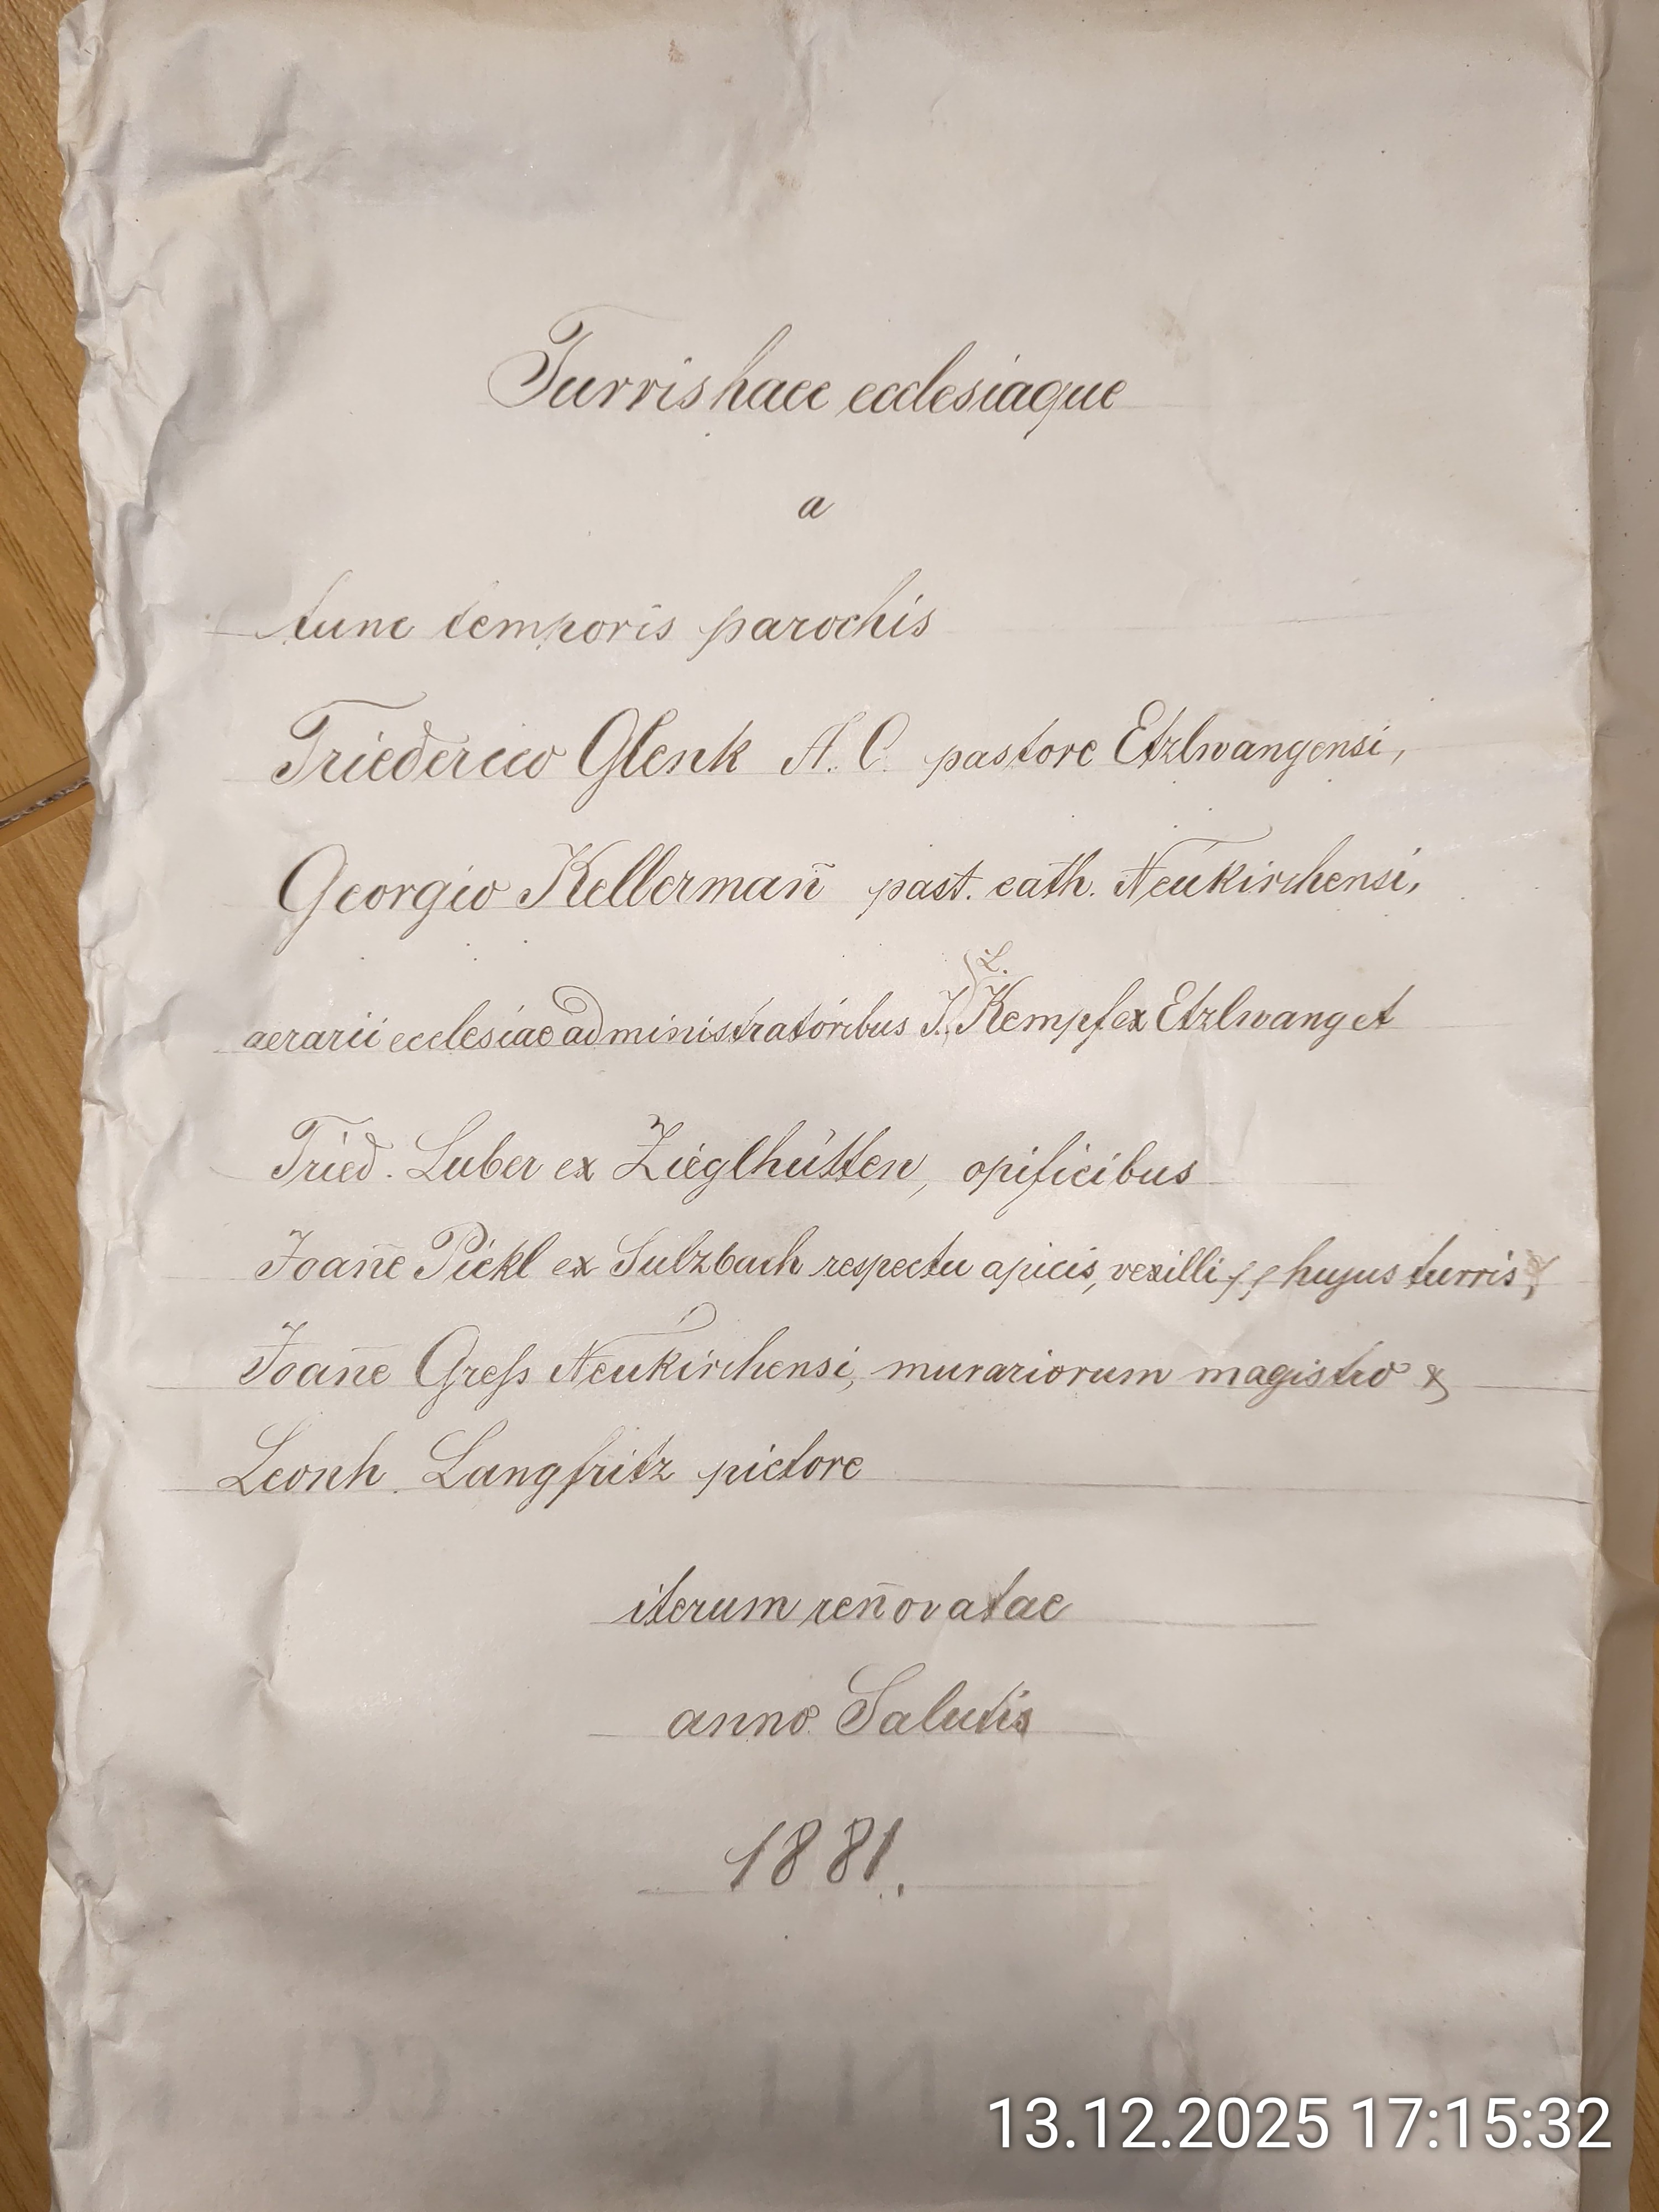 Turris haec ecclesiaque
a
tunc temporis parochis
Friederico Glenk A. C. pastore Etzlwangensi,
Georgio Kellermañ past. cath. Neukirchensi,
L.
aerarii ecclesiae administratoribus J. Kempf ex Etzlwang et
Fried. Luber ex Zieglhütten, opificibus
Joañe Pickl ex Sulzbach respectu apicis, vexilli pp hujus turris,
Joañe Greſs Neukirchensi, murariorum magistro &
Leonh. Langfritz pictore
iterum reñovatae
anno Salutis
1881.
13.12.2025 17:15:32